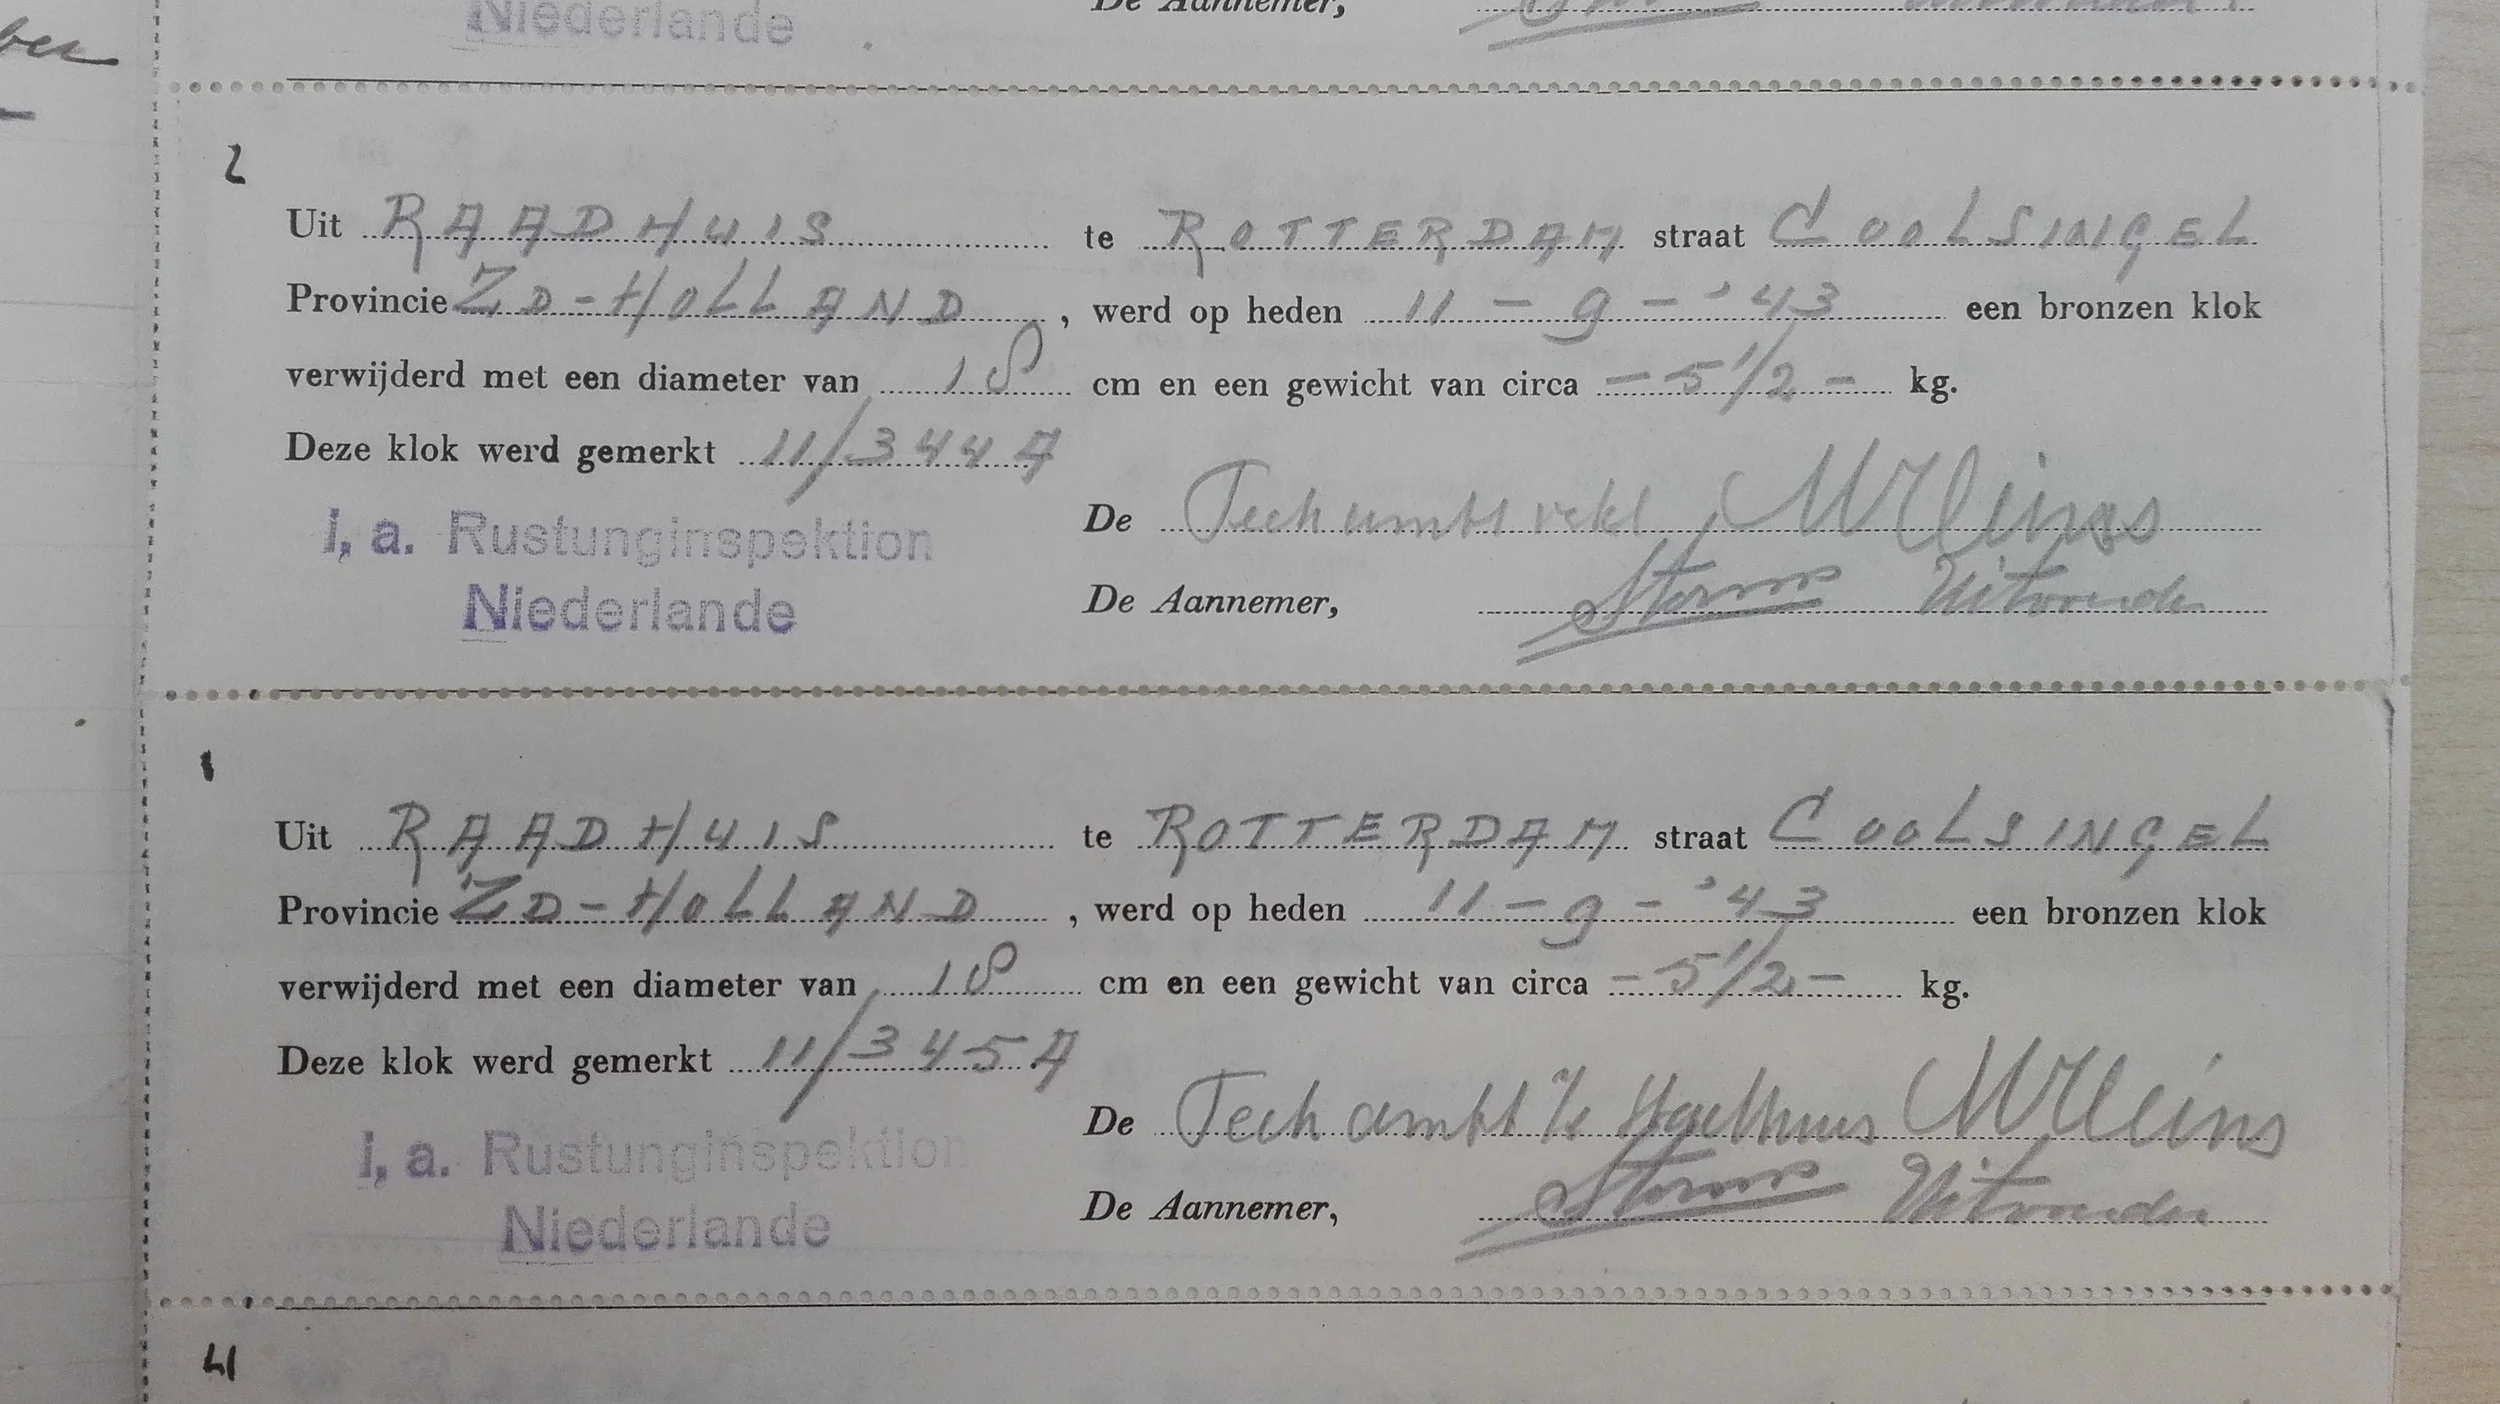 ber
Niederlande
De Aannemer,
2
Uit RAADHUIS te ROTTERDAM straat COOLSINGEL
Provincie ZD-HOLLAND, werd op heden 11-9-'43 een bronzen klok
verwijderd met een diameter van 18 cm en een gewicht van circa -5 1/2- kg.
Deze klok werd gemerkt 11/344A
i, a. Rustunginspektion
Niederlande
De Tech
De Aannemer, Storms
1
Uit RAADHUIS te ROTTERDAM straat COOLSINGEL
Provincie ZD-HOLLAND, werd op heden 11-9-'43 een bronzen klok
verwijderd met een diameter van 18 cm en een gewicht van circa -5 1/2- kg.
Deze klok werd gemerkt 11/345A
i, a. Rustunginspektion
Niederlande
De Tech
De Aannemer, Storms
41